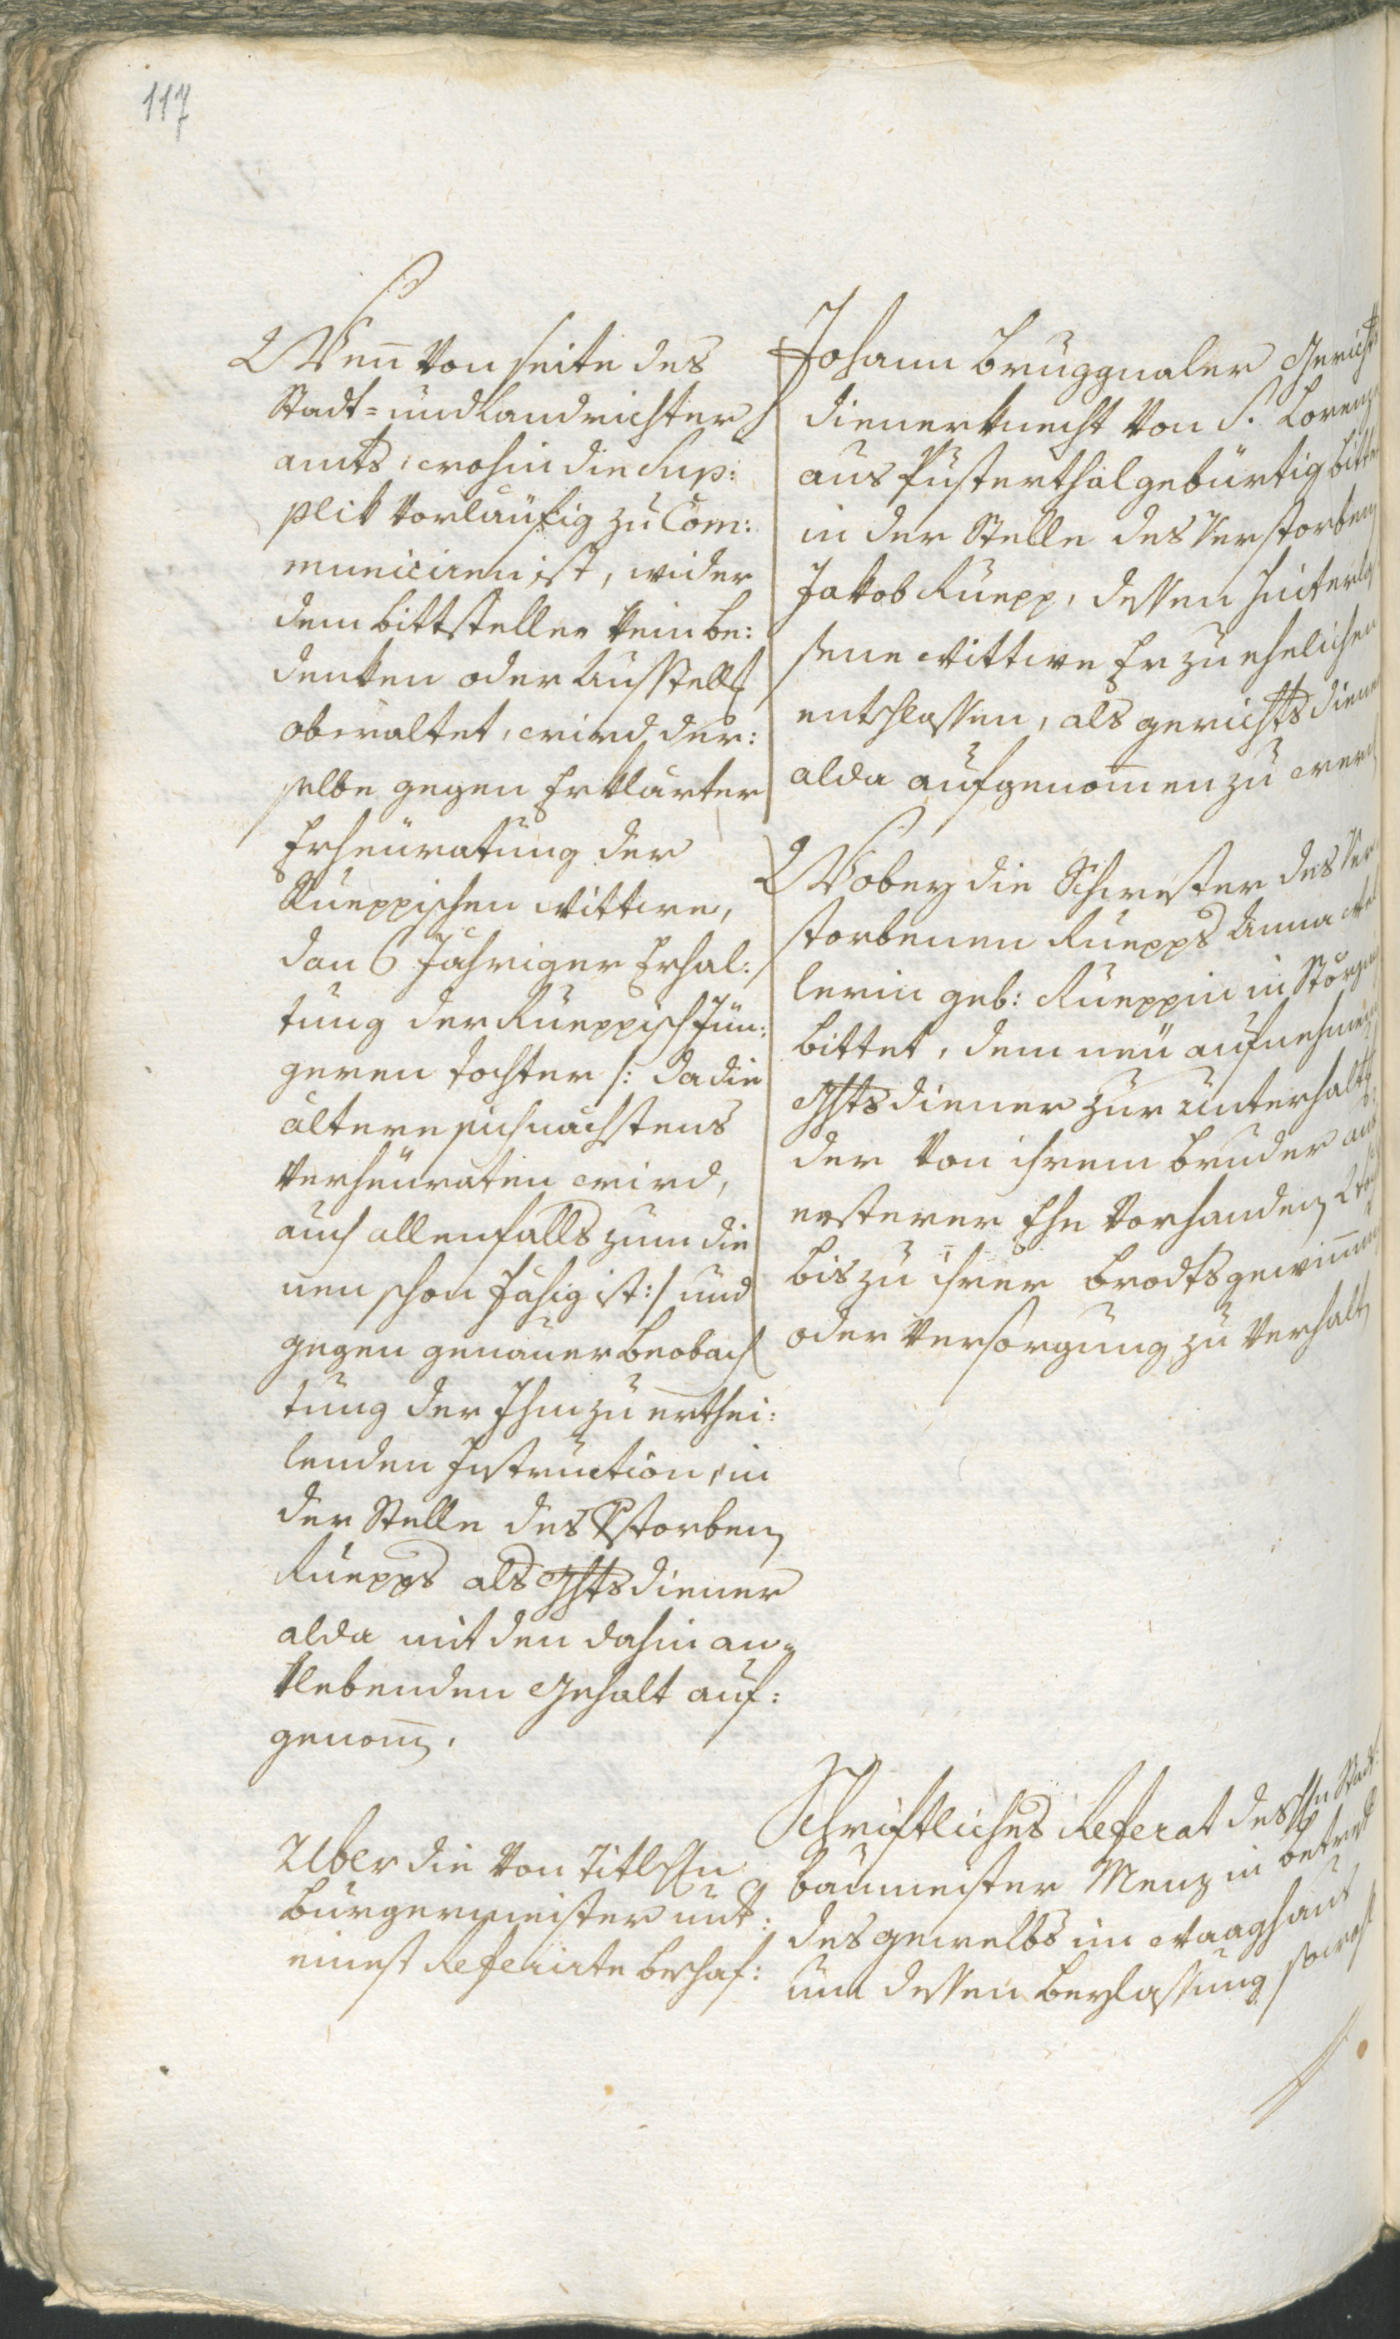 117
Wen̄ von seite des
Stadt= und Landrichter
amts, wohin die Sup:
plik vorläufig zu Com:
municiren ist, wider
dem bittsteller kein be:
denken oder Ausstellg
obwaltet, wird der:
selbe gegen Erklärter
Erheüratung der
Rueppischen wittwe,
dan 6 Jähriger Erhal:
tung der Rueppisch Jün:
geren tochter /: da die
ältere sich nächstens
verheüraten wird,
auch allenfalls zum die
nen schon fähig ist :/ und
gegen genauer beobach
tung der Ihm zu erthei:
lenden Instruction, in
der Stelle des Vstorben
Ruepps als Ghtsdiener
alda mit den dahin an=
klebenden Gehalt auf:
genom̄.
Uber die von Titl Hn
burgermeister mit:
einst Referirte beschaf:
Johann bruggnaler Gerichts
dienerknecht von S. Lorenz
aus Pusterthal gebürtig bitte
in der Stelle des Verstorben
Jakob Ruepp, dessen hinterla
sene wittwe Er zu ehelichen
entschlossen, als gerichts diene
alda aufgenom̄en zu werd
Wobey die Schwester des Ver
storbenen Ruepps Anna
lerin geb: Rueppin in
bittet, dem neü aufnehmen
Ghtsdiener zur unterhaltg
der von ihrem bruder aus
ersterer Ehe vorhanden 2
bis zu ihrer brodtsgewinnung
oder versorgung zu verhalt
Schriftliches Referat des Hn Stadt
baumeister Menz in betref
des gewelbs im waaghaus
um dessen beylassung sowohl